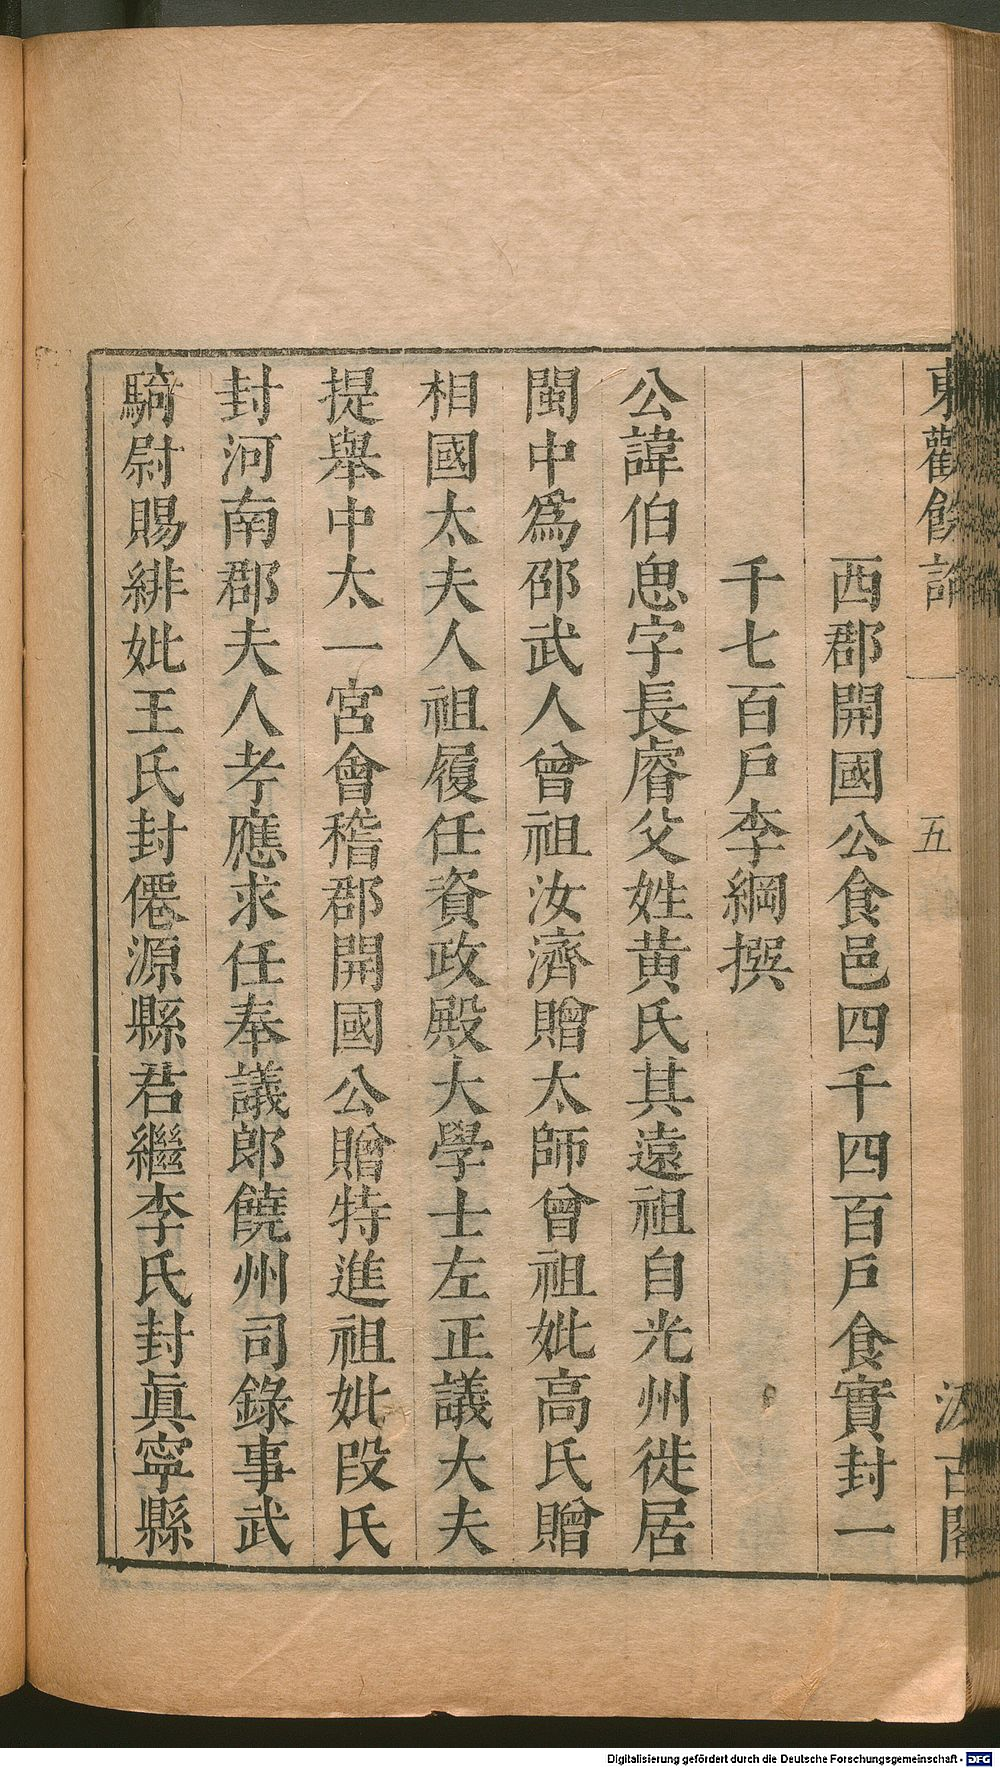 東觀餘論
五
汲古閣
西郡開國公食邑四千四百戶食實封一
千七百戶李綱撰
公諱伯思字長睿父姓黃氏其遠祖自光州徙居
閩中爲邵武人曾祖汝濟贈太師曾祖妣高氏贈
相國太夫人祖履任資政殿大學士左正議大夫
提舉中太一宮會稽郡開國公贈特進祖妣段氏
封河南郡夫人考應求任奉議郎饒州司錄事武
騎尉賜緋妣王氏封僊源縣君繼李氏封眞寧縣
Digitalisierung gefördert durch die Deutsche Forschungsgemeinschaft - DFG